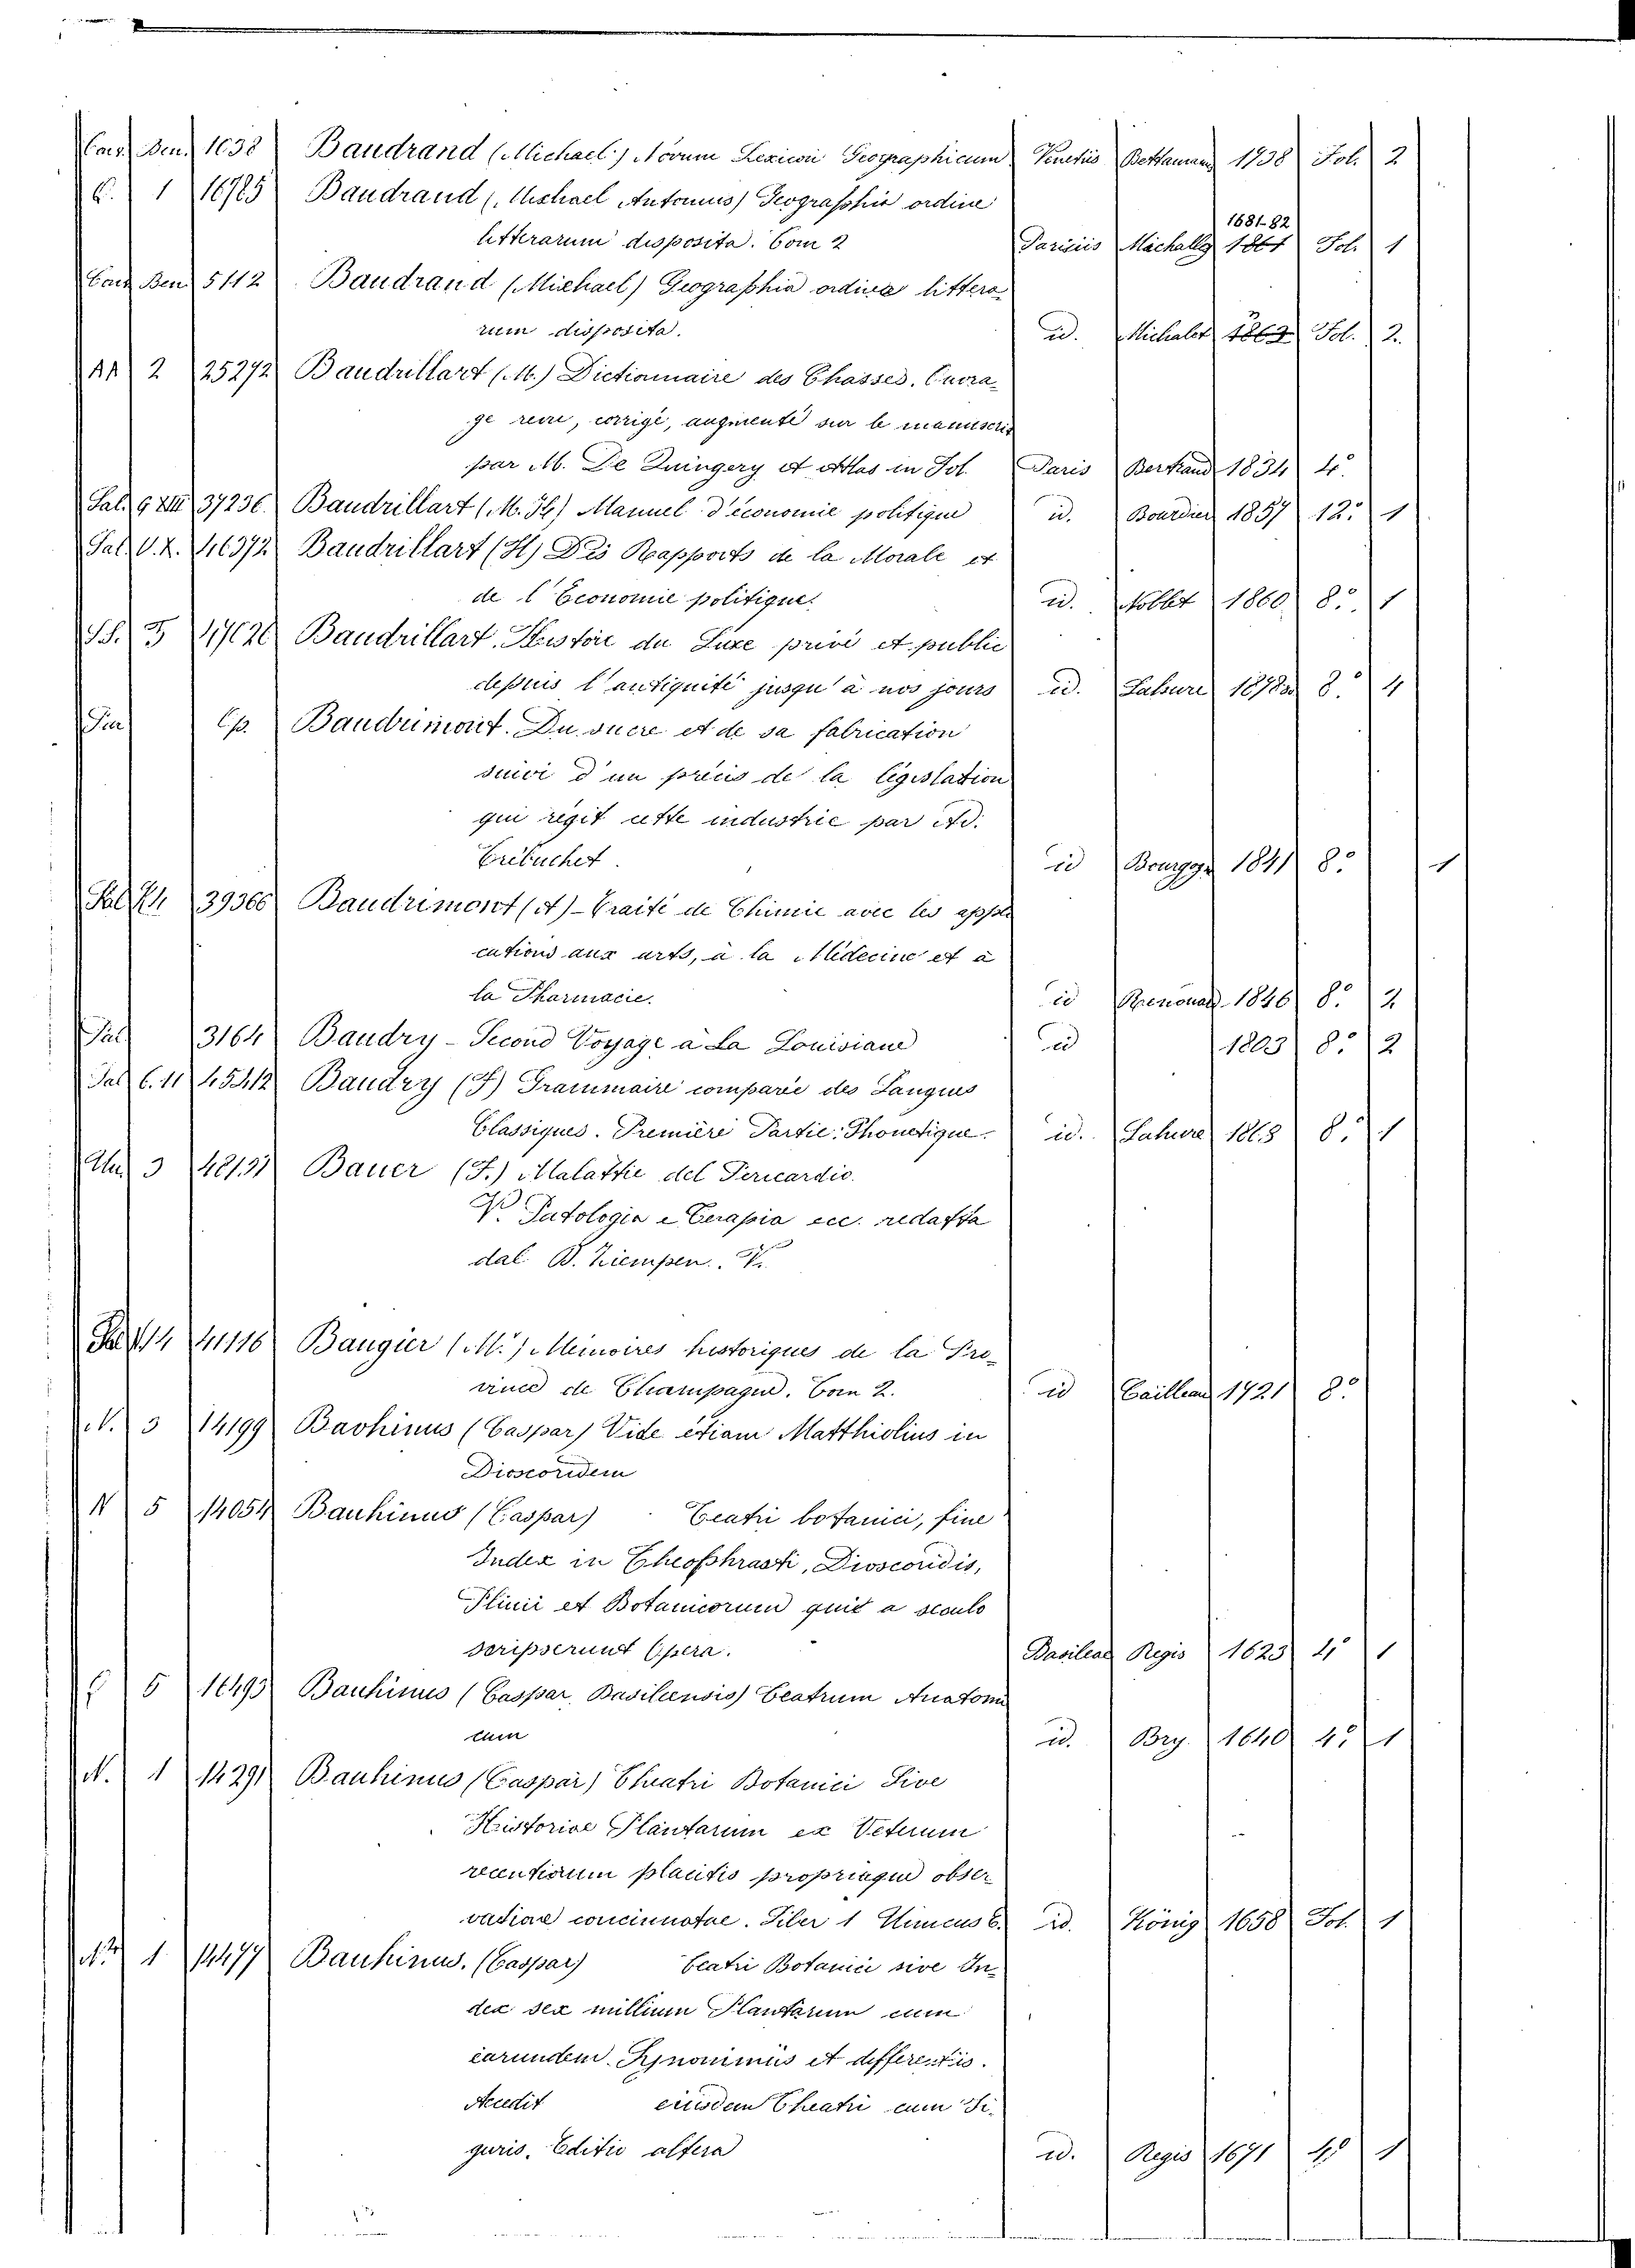 Cas. Ben. 1638 Baudrand (Michael) Novum Lexicon Geographicum Venetiis Bettanam 1738 Fol. 2
C. 1 16785 Baudrand (Michael Antonius) Geographia ordine
litterarum disposita. Tom 2 Parisiis Michalle 1681-82 Fol. 1
Cas Ben 5112 Baudrand (Michael) Geographia ordine littera
rum disposita. id. Michalet Fol. 2.
AA 2 25272 Baudrillart (M.) Dictionnaire des Chasses. Ouvra-
ge revu, corrigé, augmenté sur le manuscrit
par M. De Quingery et Atlas in Fol. Paris Bertrand 1834 4°
Sal. G XIII 37236 Baudrillart (M. H.) Manuel d'économie politique id. Bourdier 1857 12° 1
Sal. V.X. 46372 Baudrillart (H) Des Rapports de la Morale et
de l'Economie politique. id. Noblet 1860 8° 1
SS. 5 47626 Baudrillart. Histoire du Luxe privé et public
depuis l'antiquité jusqu'à nos jours id. Lahure 1878 8° 4
Op. Baudrimont. Du sucre et de sa fabrication
suivi d'un précis de la législation
qui régit cette industrie par Ad.
Trebuchet. id Bourgogne 1841 8° 1
Sal 39366 Baudrimont (A) - Traité de Chimie avec les appli
cations aux arts, à la Médecine et à
la Pharmacie. id Renouard 1846 8° 2
Sal 3164 Baudry - Second Voyage à La Louisiane id 1803 8° 2
Sal C. 11 45412 Baudry (F) Grammaire comparée des Langues
Classiques. Première Partie: Phonétique. id. Lahure 1868 8° 1
3 48131 Bauer (F.) Malattie del Pericardio.
V. Patologia e Terapia ecc. redatta
dal B. Ziempen. V.
41116 Baugier (M.) Mémoires historiques de la Pro-
vince de Champagne. Tom 2. id Cailleau 1721 8°
N. 3 14199 Bavhinus (Caspar) Vide etiam Matthiolius in
Dioscoridem
N 5 14054 Bauhinus (Caspar) Teatri botanici, sine
Index in Theophrasti, Dioscoridis,
Plinii et Botanicorum quit a seculo
scripserunt Opera. Basileae Regis 1623 4° 1
C 5 16493 Bauhinus (Caspar, Basileensis) Teatrum Anatomi
cum id. Bry. 1640 4° 1
N. 1 14291 Bauhinus (Caspar) Theatri Botanici Sive
Historiae Plantarum ex Veterum
recentiorum plantis propriaque obser
vatione concinnatae. Liber 1 Unicus C. id. König 1658 Fol. 1
N. 1 14477 Bauhinus. (Caspar) Teatri Botanici sive In-
dex sex millium Plantarum cum
earundem Synonimiis et differentiis.
Accedit eiusdem Theatri cum Fi-
guris. Editio altera id. Regis 1671 4° 1